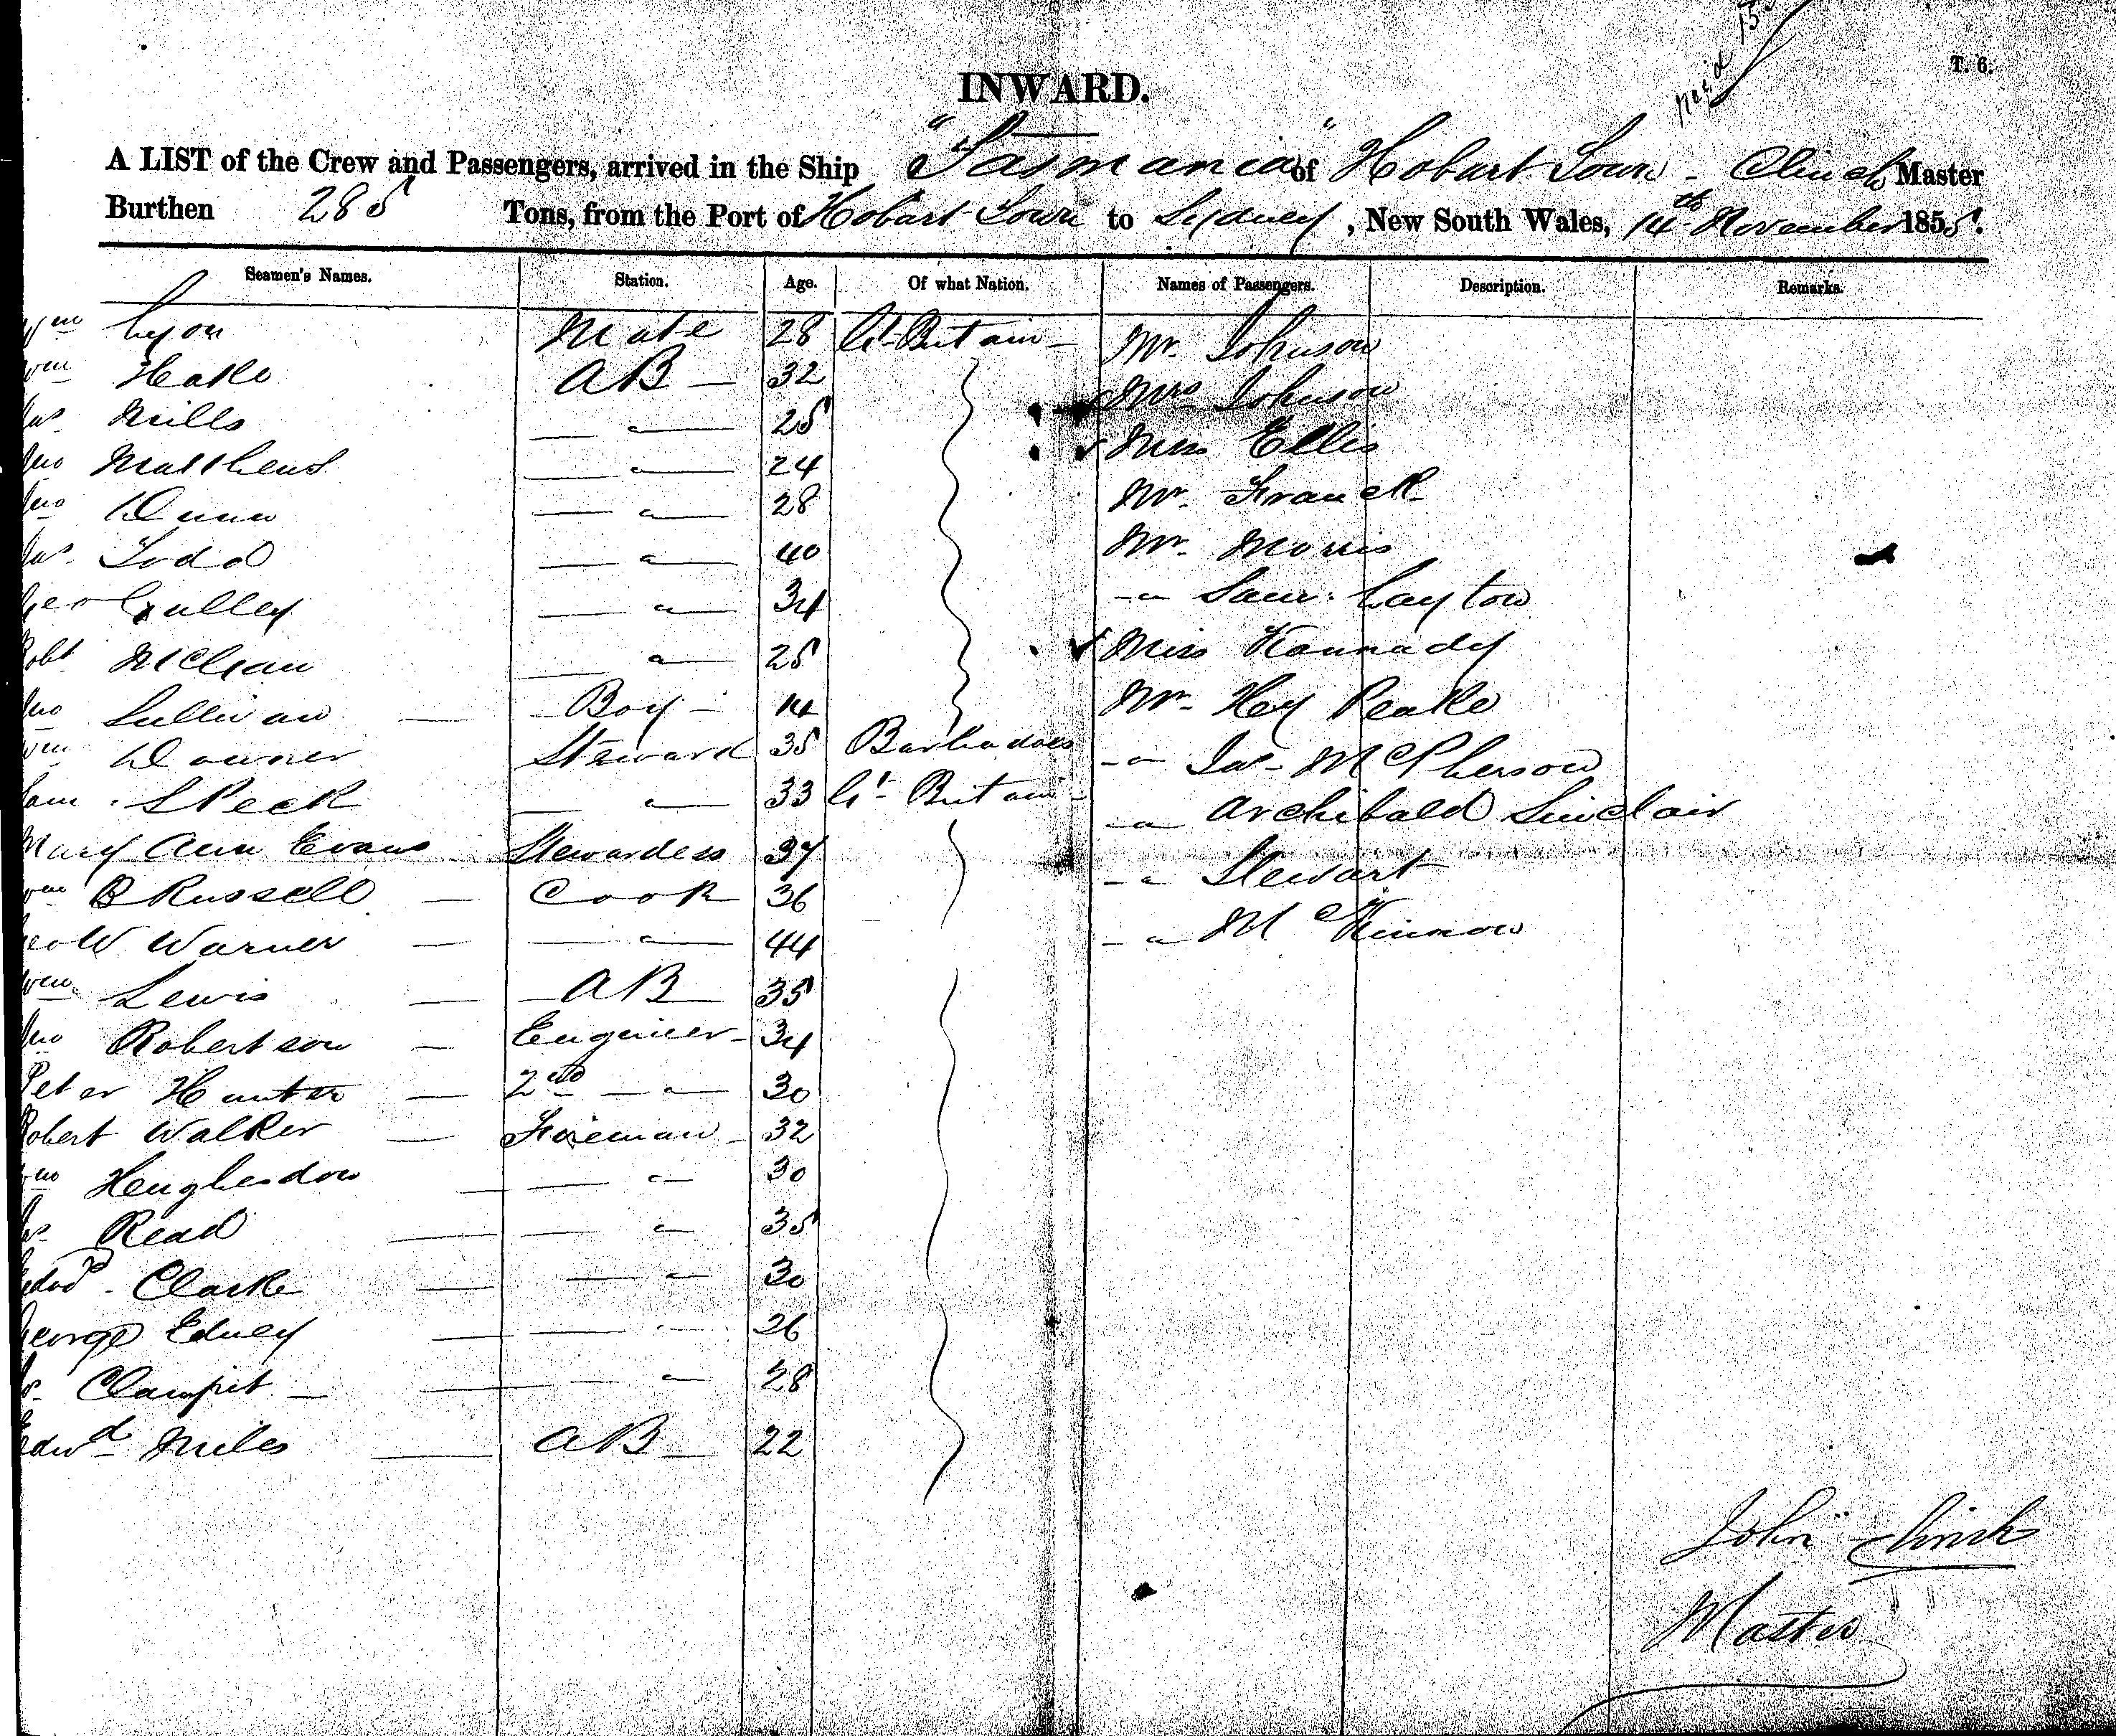 T. 6.
INWARD.
A LIST of the Crew and Passengers, arrived in the Ship "Tasmania" of Hobart Town - Clinch Master
Burthen 285 Tons, from the Port of Hobart Town to Sydney, New South Wales, 14th November 1855.
Seamen's Names. Station. Age. Of what Nation. Names of Passengers. Description. Remarks.
Wm Lyon Mate 28 Gt Britain - Mr. Johnson
Wm Hake AB - 32 Mrs Johnson
Jas Mills — " — 25 Miss Ellis
Jno Matthews — " — 24 Mr. Franck
Jno Dunn — " — 28 Mr. Morris
Jas. Todd — " — 40 - " Saml. Layton
Geo Gulley — " — 34 Miss Kannady
Robt McClean — " — 25 Mr. Hey Peake
Jno Sullivan — Boy - 14 - " Jas - McPherson
Wm Downer Steward 35 Barbadoes - " Archibald Sinclair
Sam. Speck — " — 33 Gt Britain - - " Stewart
Mary Ann Evans Stewardess 37 - " McKinnon
Wm B Russell — Cook 36
Geo W Warner — — " — 44
Wm Lewis — AB 35
Jno Robertson — Engineer - 34
Peter Hunter — 2nd — " — 30
Robert Walker — Fireman - 32
Jno Henghesdon — — " — 30
Jas Read — — " — 35
Edwd. Clarke — — " — 30
George Edney — — " — 26
Clampit — — " — 28
Edwd Miles — AB — 22
John Clinch
Master